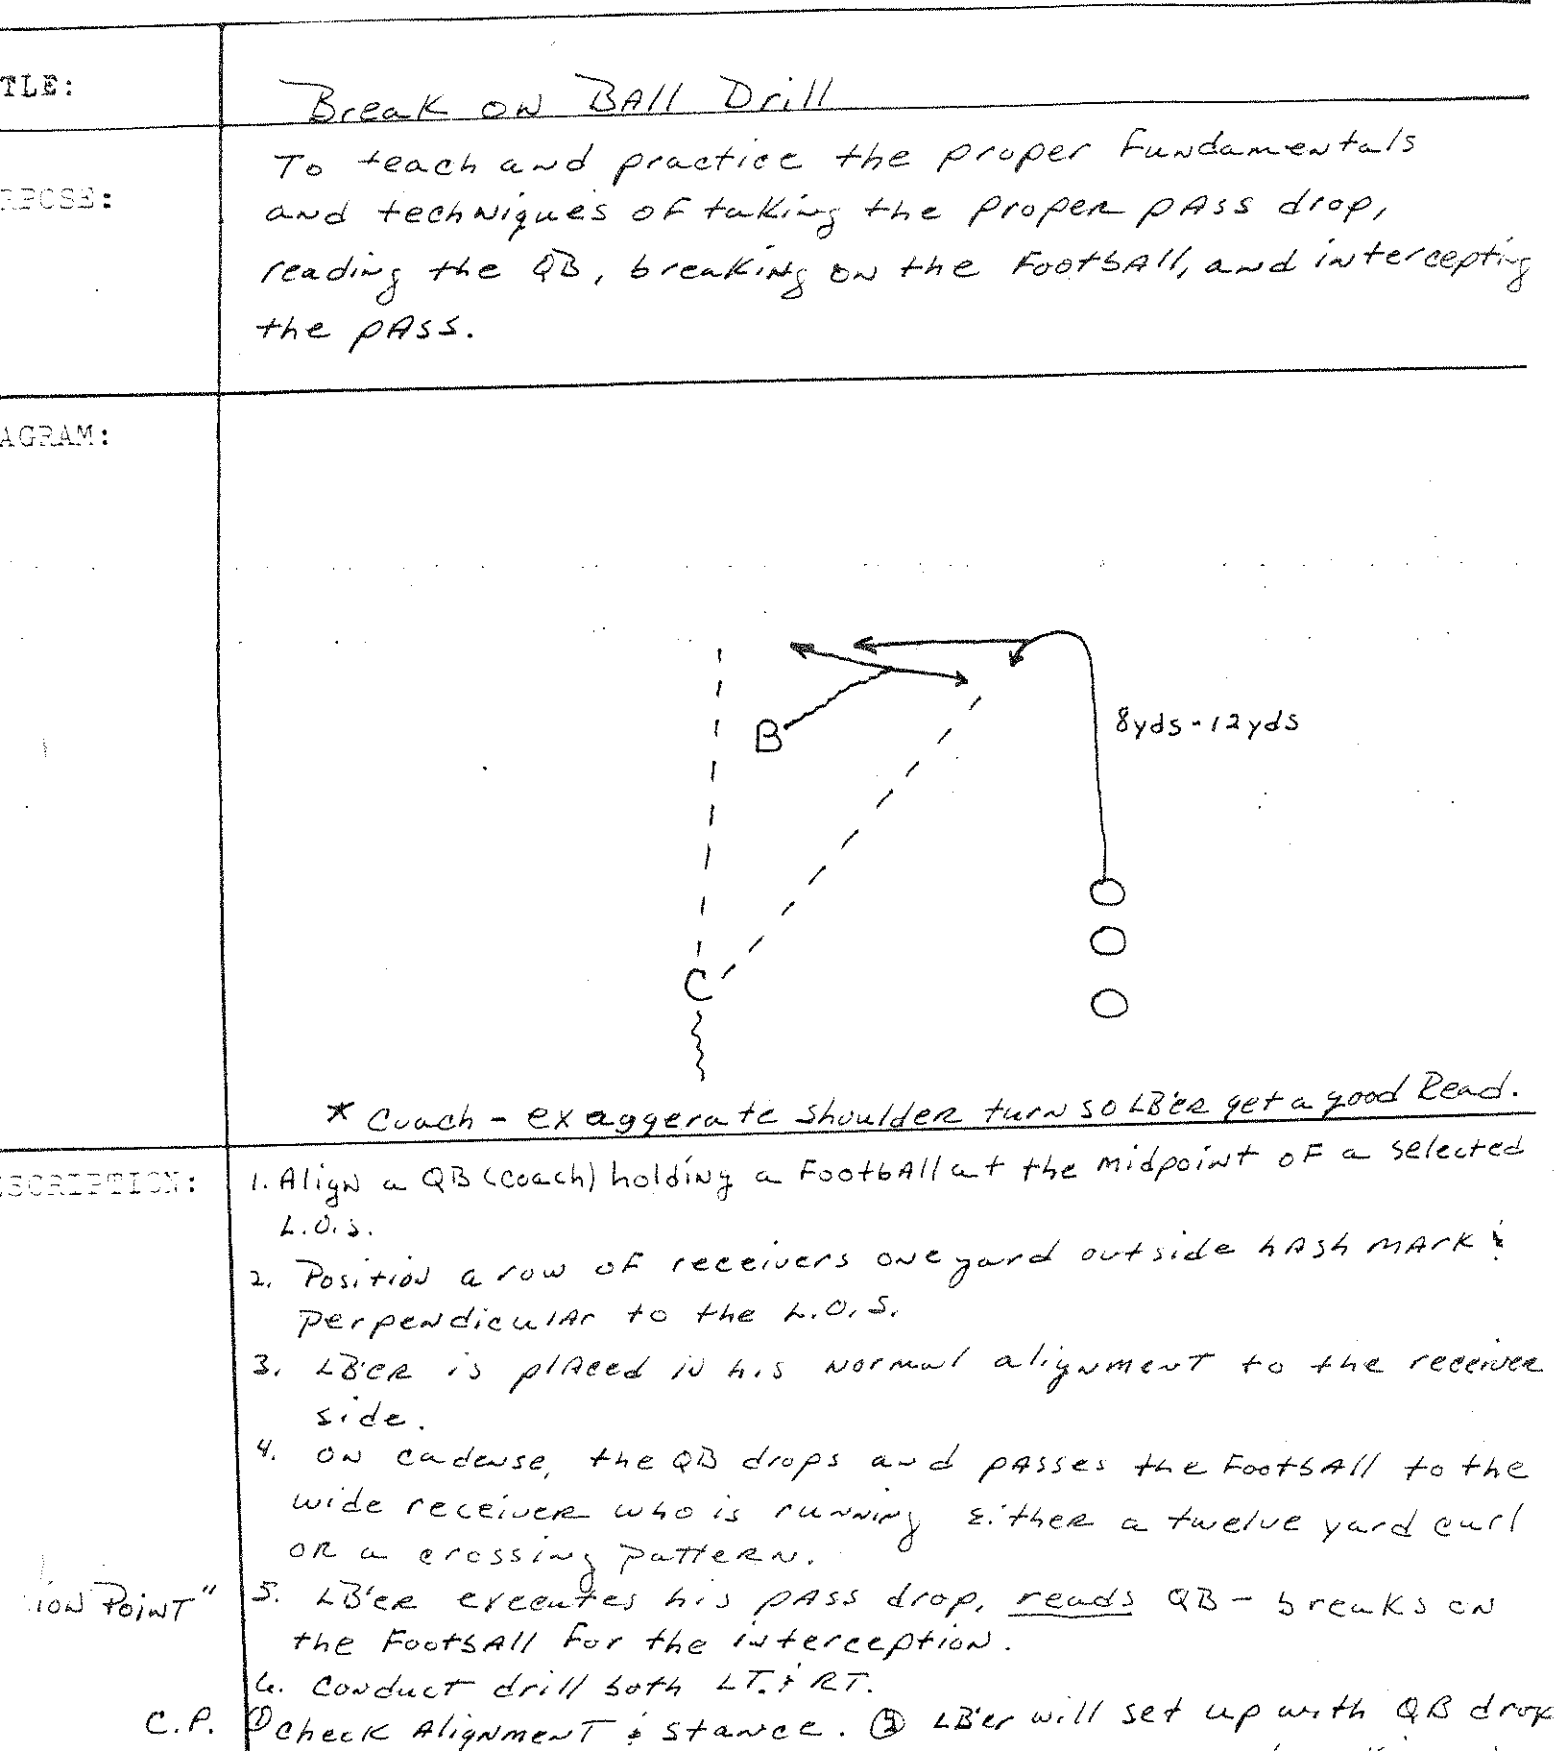 TLE: Break on Ball Drill
RPOSE: To teach and practice the proper Fundamentals
and techniques of taking the proper pass drop,
reading the QB, breaking on the Football, and intercepting
the pass.
AGRAM:
B
8yds - 12yds
C
* Coach - exaggerate shoulder turn so LB'er get a good Read.
SCRIPTION: 1. Align a QB (coach) holding a Football at the midpoint of a selected
L.O.S.
2. Position a row of receivers one yard outside hash mark &
perpendicular to the L.O.S.
3. LB'er is placed in his normal alignment to the receiver
side.
4. on cadense, the QB drops and passes the Football to the
wide receiver who is running either a twelve yard curl
or a crossing pattern.
ION POINT" 5. LB'er executes his pass drop, reads QB - breaks on
the Football for the interception.
6. Conduct drill both LT. & RT.
C.P. ① check Alignment & stance. ② LB'er will set up with QB drop